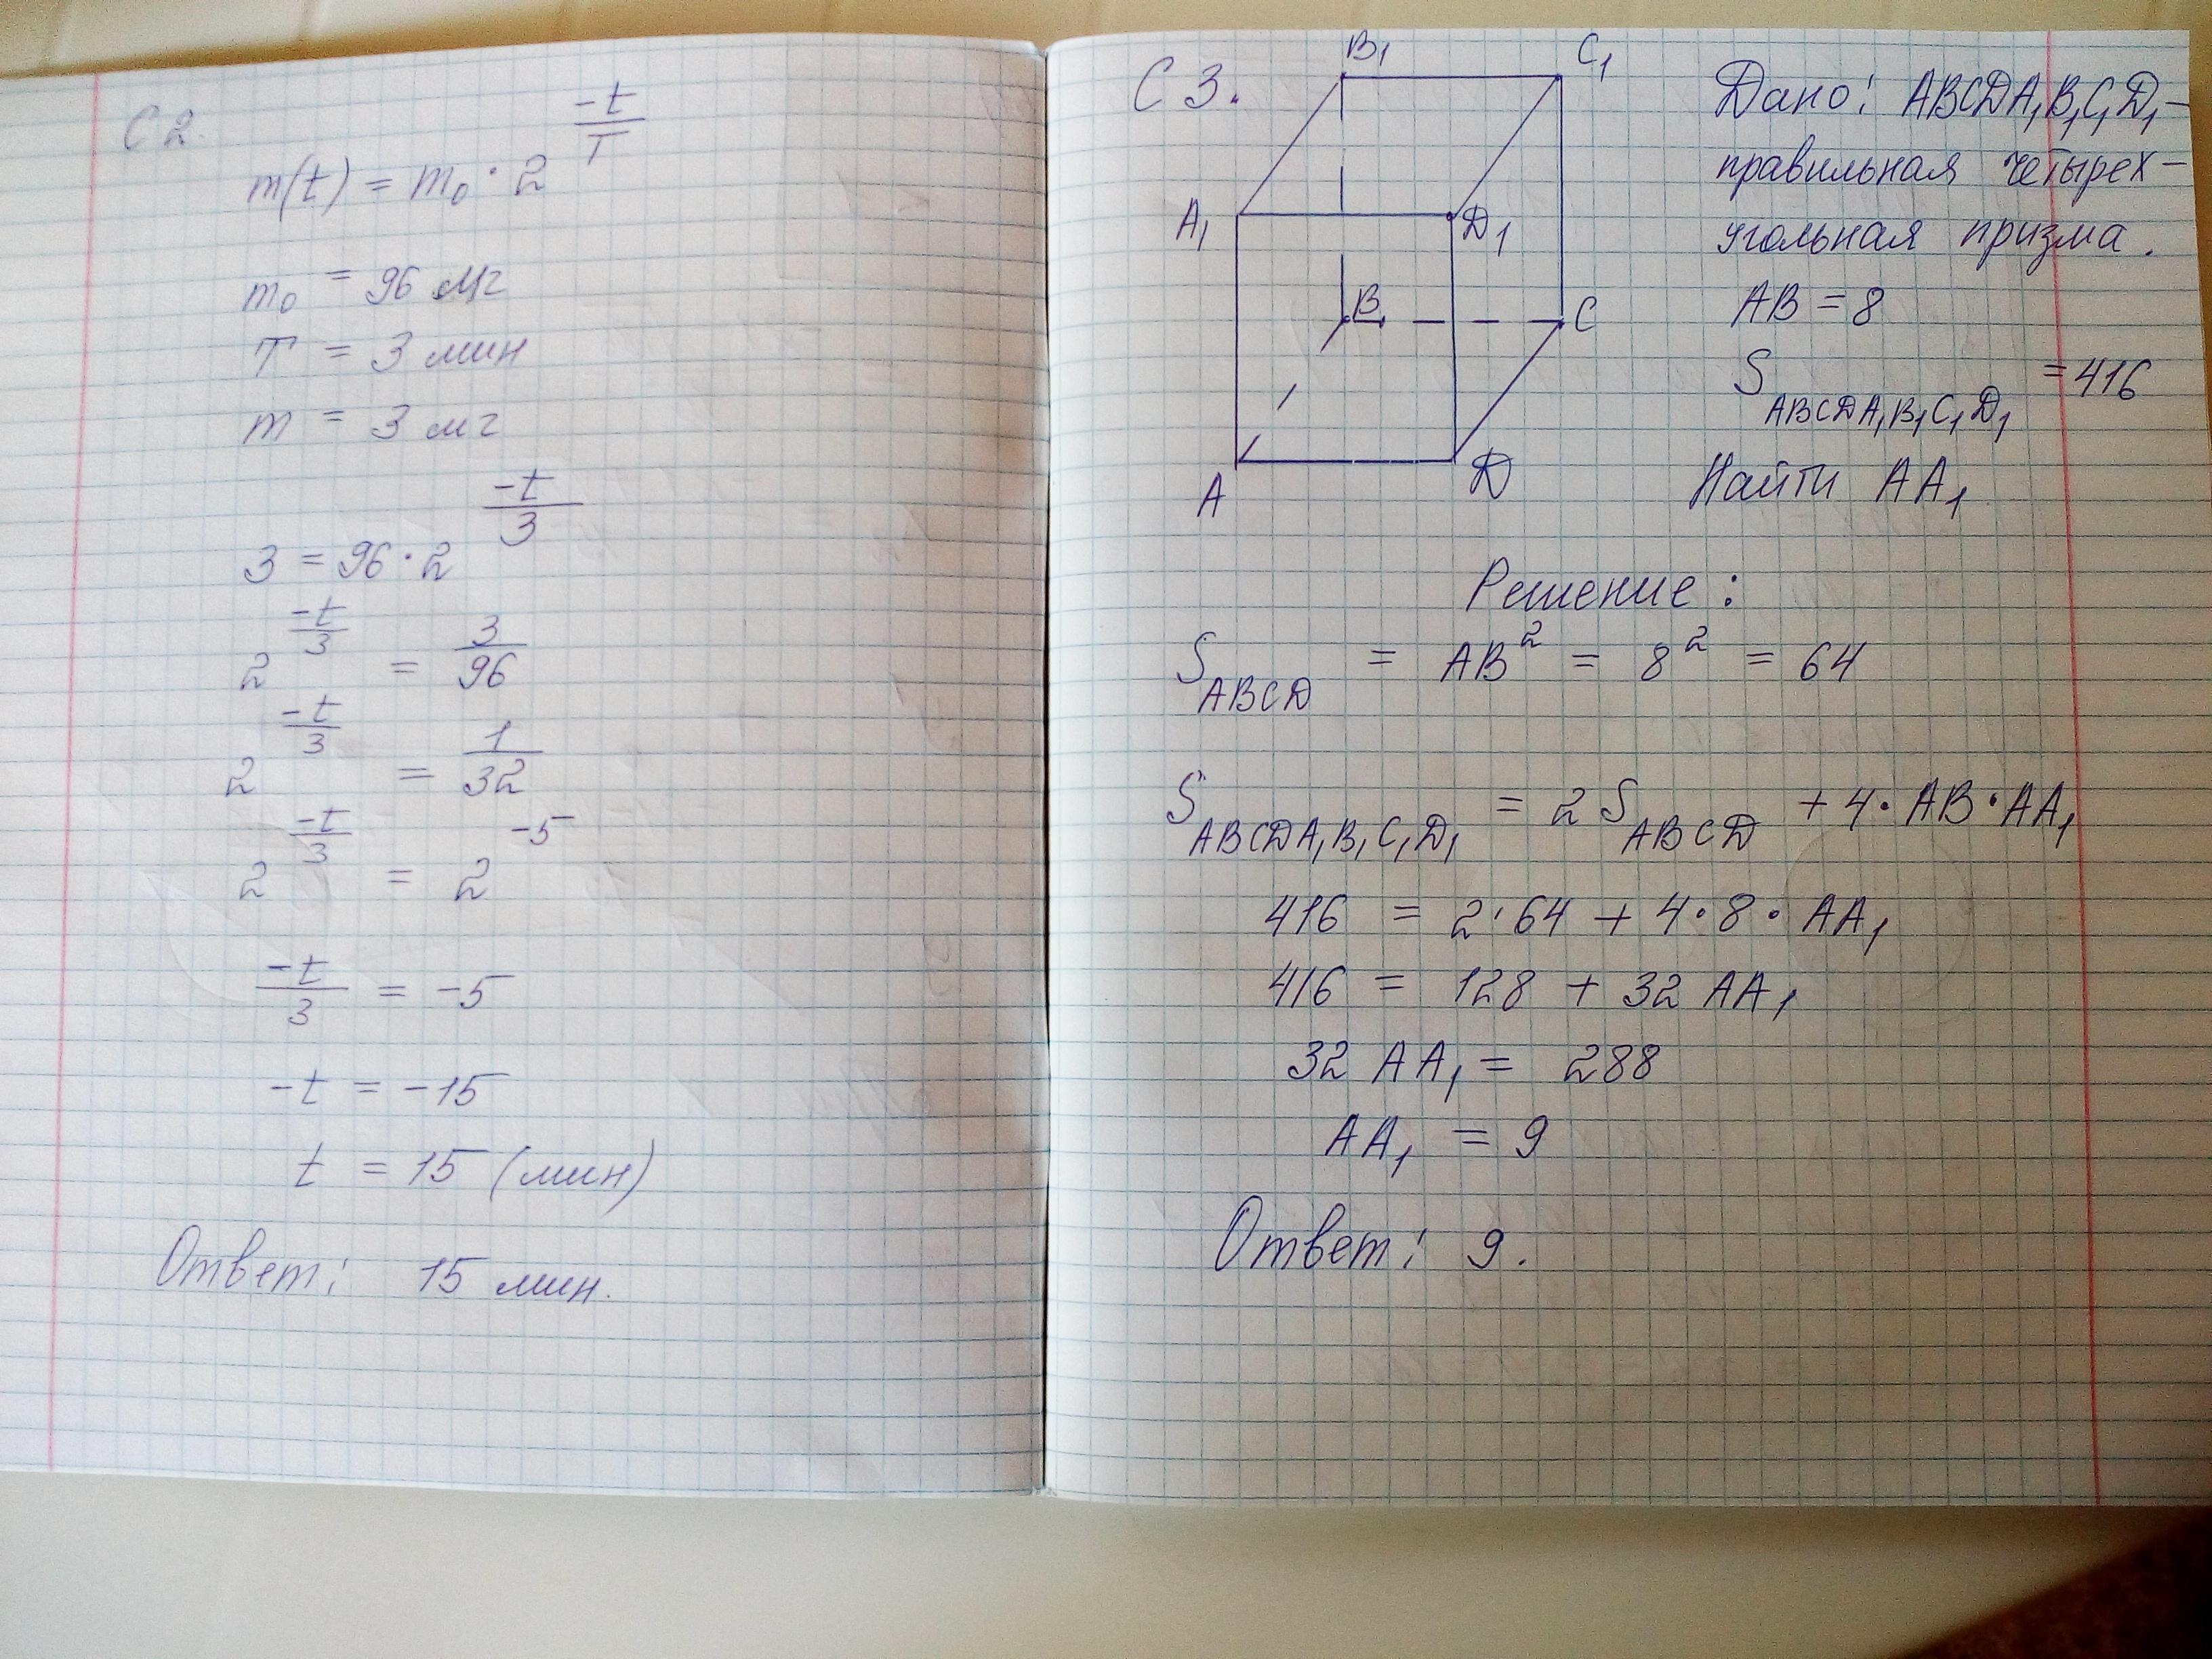 С 2.
m(t) = m₀ · 2^(-t/T)
m₀ = 96 мг
T = 3 мин
m = 3 мг
3 = 96 · 2^(-t/3)
2^(-t/3) = 3/96
2^(-t/3) = 1/32
2^(-t/3) = 2^(-5)
-t/3 = -5
-t = -15
t = 15 (мин)
Ответ: 15 мин.
С 3.
B₁ C₁
A₁ D₁
B C
A D
Дано: ABCDA₁B₁C₁D₁ –
правильная четырех-
угольная призма.
AB = 8
S ABCDA₁B₁C₁D₁ = 416
Найти AA₁
Решение:
S ABCD = AB² = 8² = 64
S ABCDA₁B₁C₁D₁ = 2 S ABCD + 4 · AB · AA₁
416 = 2 · 64 + 4 · 8 · AA₁
416 = 128 + 32 AA₁
32 AA₁ = 288
AA₁ = 9
Ответ: 9.